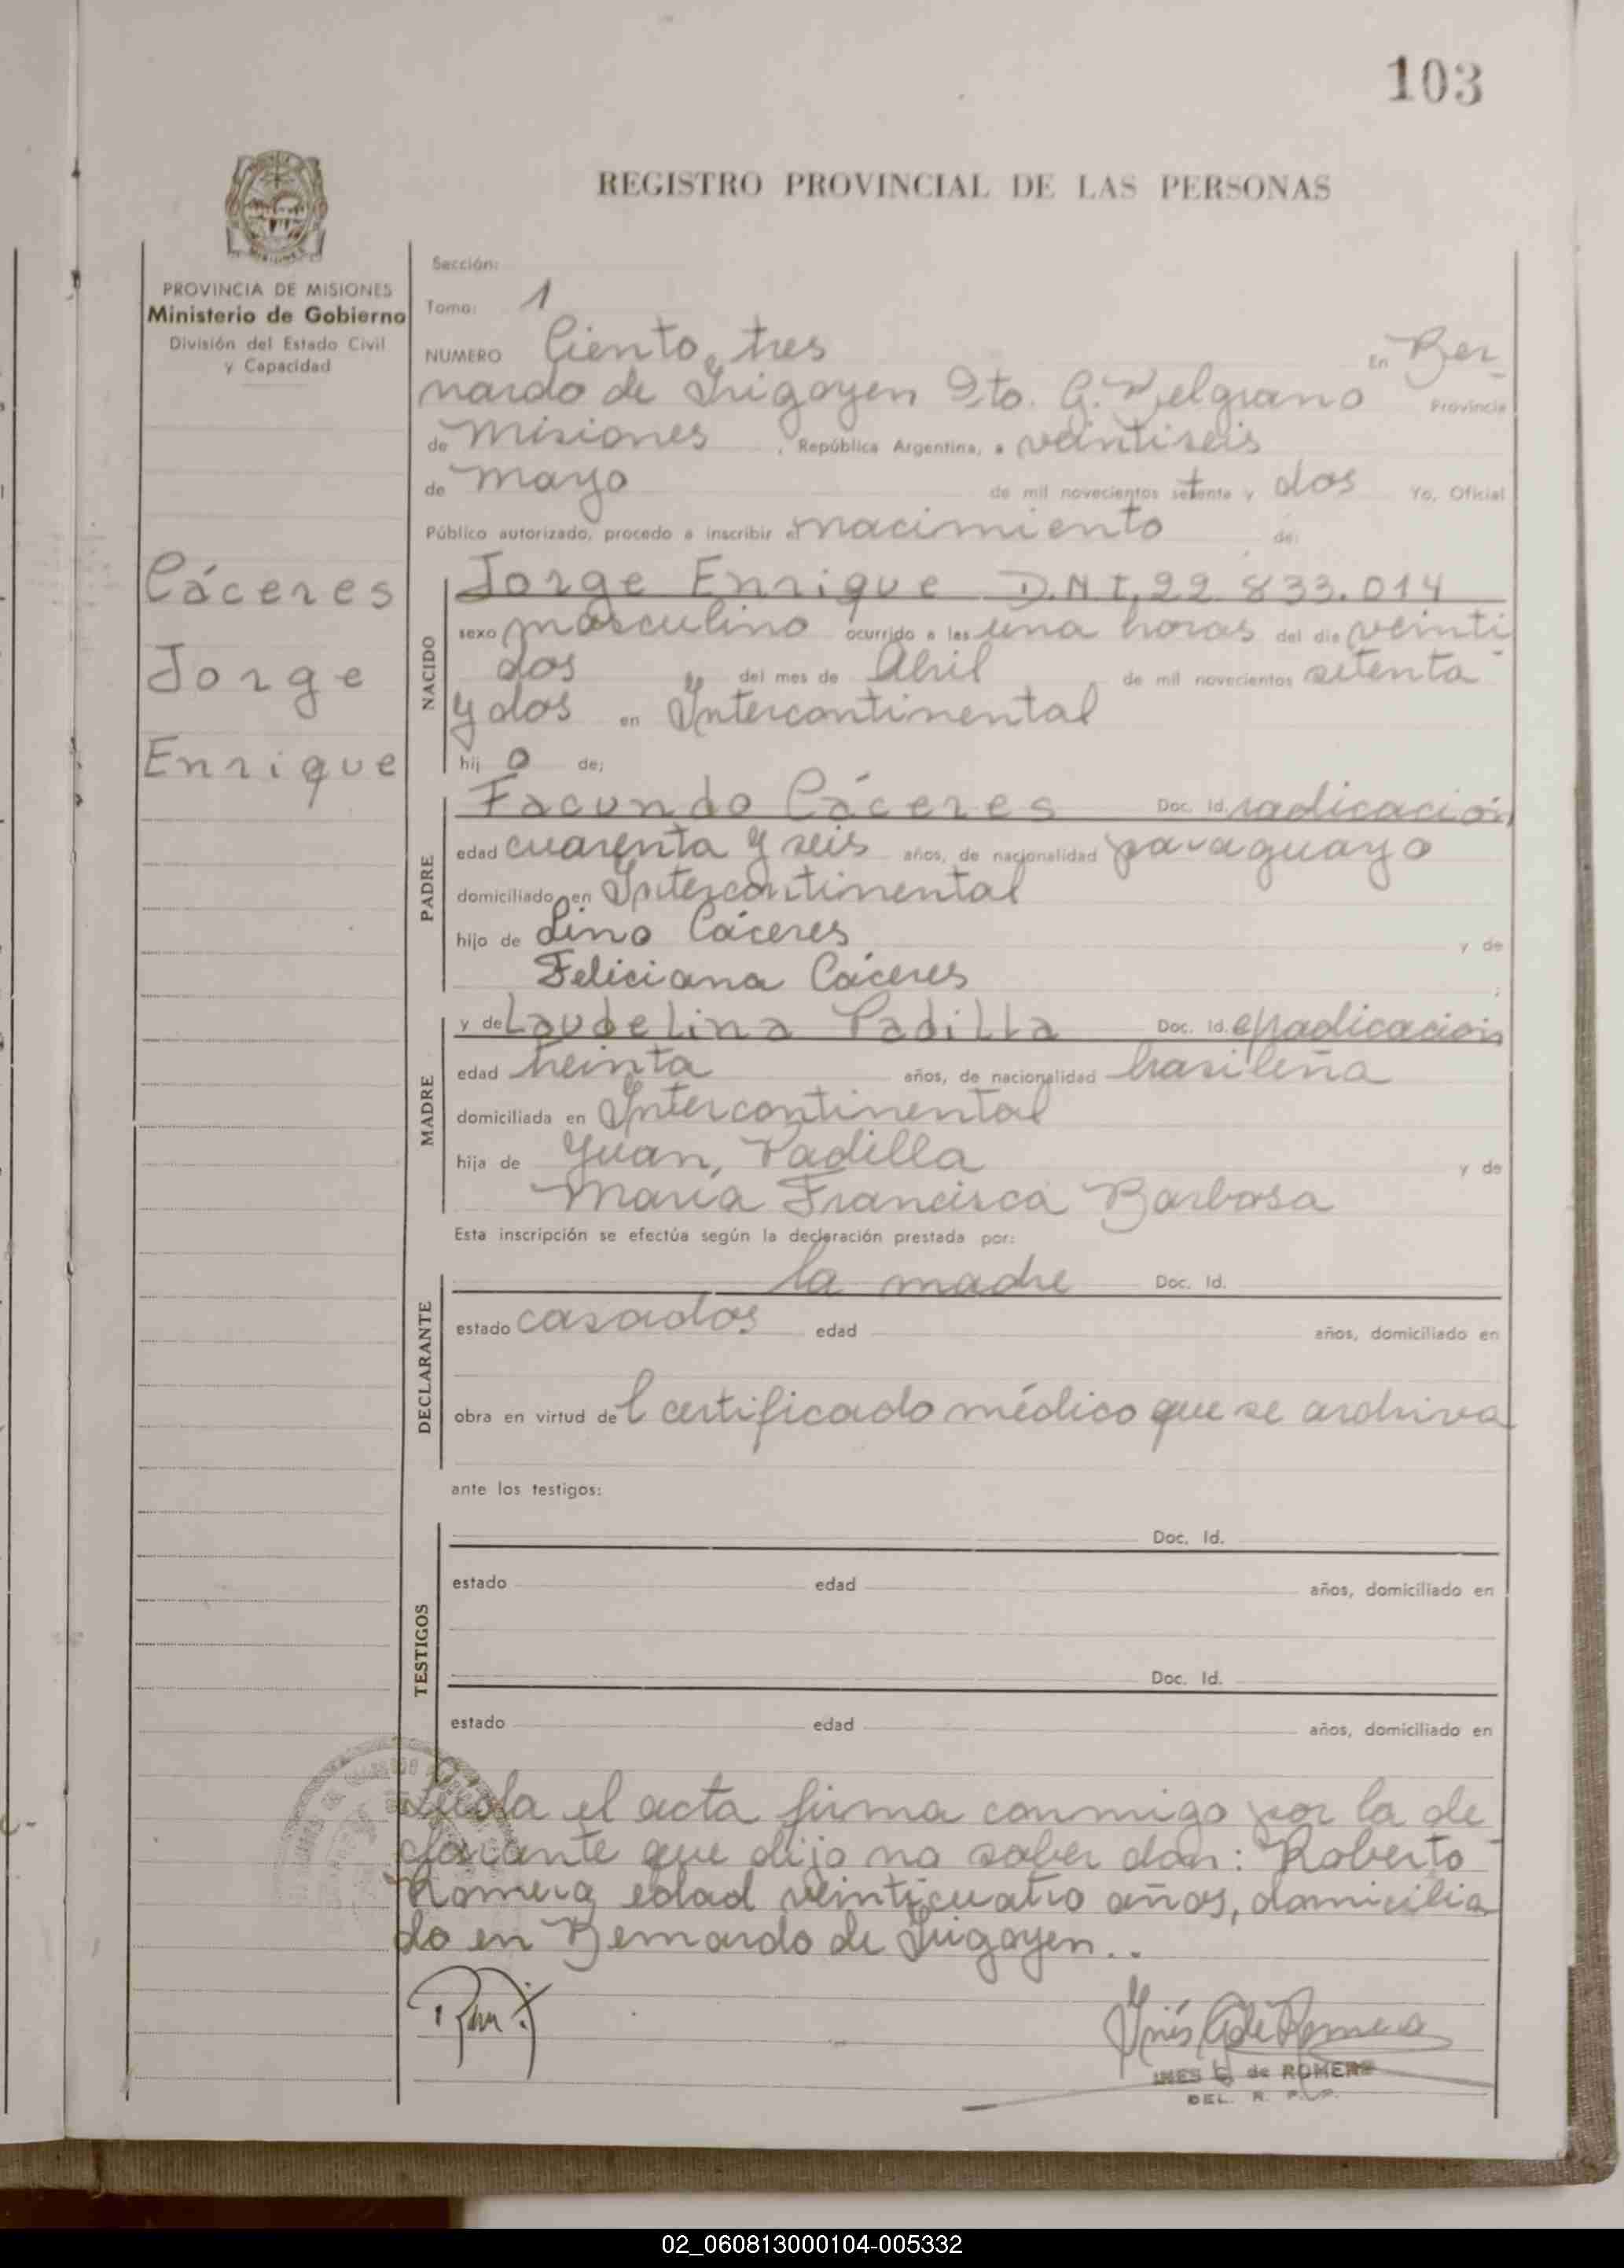 103
REGISTRO PROVINCIAL DE LAS PERSONAS
PROVINCIA DE MISIONES
Ministerio de Gobierno
División del Estado Civil
y Capacidad
Cáceres
Jorge
Enrique
Sección:
Tomo: 1
NUMERO Ciento tres En Ber
nardo de Irigoyen Dto. G. Belgrano Provincia
de Misiones, República Argentina, a veintiseis
de mayo de mil novecientos setenta y dos Yo, Oficial
Público autorizado, procedo a inscribir el nacimiento de:
NACIDO
Jorge Enrique D.N.I. 22.833.014
sexo masculino ocurrido a las una horas del día veinti
dos del mes de Abril de mil novecientos setenta
y dos en Intercontinental
hij o de;
PADRE
Facundo Cáceres Doc. Id. radicación
edad cuarenta y seis años, de nacionalidad paraguayo
domiciliado en Intercontinental
hijo de Lino Cáceres y de
Feliciana Cáceres ;
MADRE
y de Laudelina Padilla Doc. Id. radicación
edad treinta años, de nacionalidad brasileña
domiciliada en Intercontinental
hija de Juan, Padilla y de
María Francisca Barbosa
Esta inscripción se efectúa según la declaración prestada por:
DECLARANTE
la madre Doc. Id.
estado casados edad años, domiciliado en
obra en virtud del certificado médico que se archiva
ante los testigos:
TESTIGOS
Doc. Id.
estado edad años, domiciliado en
Doc. Id.
estado edad años, domiciliado en
Leída el acta firma conmigo por la de
clarante que dijo no saber don: Roberto
Romero edad veinticuatro años, domicilia
do en Bernardo de Irigoyen..
Inés G de Romero
INES G. de ROMERO
DEL. R. P. P.
02_060813000104-005332